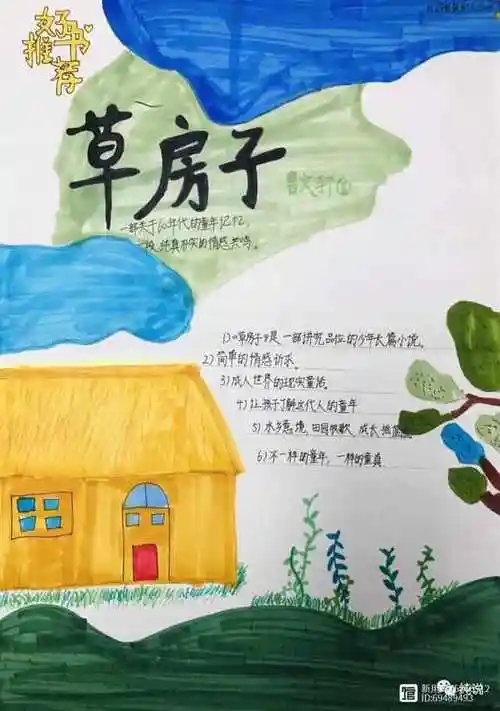 好书
推荐
草房子
曹文轩
一部关于60年代的童年记忆,
纯真不实的情感共鸣。
1)《草房子》是一部讲究品位的少年长篇小说。
2)简单的情感诉求。
3)成人世界的现实童话。
4)让孩子了解这代人的童年
5)水乡意境,田园牧歌,成长
6)不一样的童年,一样的童真
纯说
ID:69489493